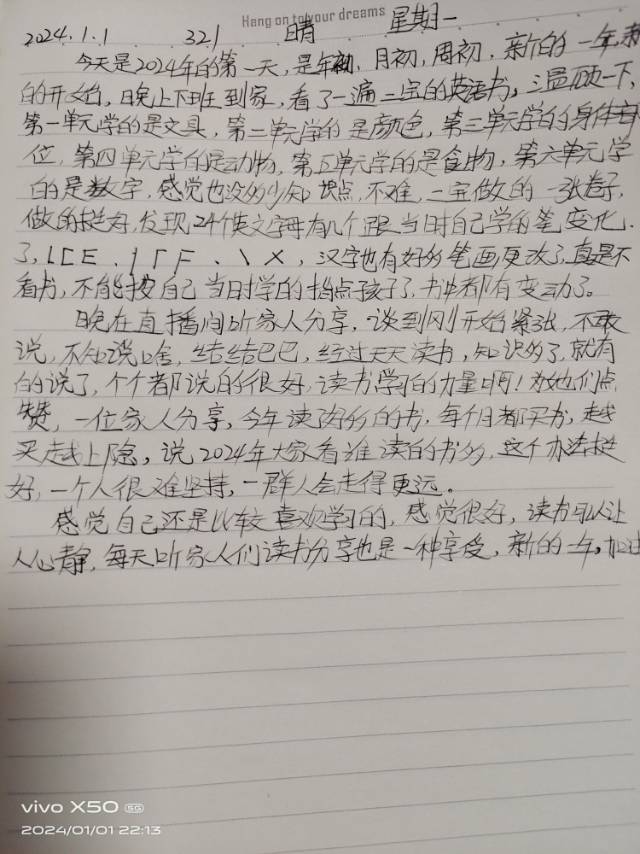 Hang on to your dreams
2024.1.1 321 晴 星期一
今天是2024年的第一天,是年初,月初,周初,新的一年,新
的开始,晚上下班到家,看了一遍二宝的英语书,温顾一下,
第一单元学的是文具,第二单元学的是颜色,第三单元学的身体部
位,第四单元学的是动物,第五单元学的是食物,第六单元学
的是数字,感觉也没多少知识点,不难,二宝做的一张卷子,
做的挺好,发现24个英文字母有几个跟当时自己学的笔变化
了,汉字也有好多笔画更改了,真是不
看书,不能按自己当时学的指点孩子了,书中都有变动了。
晚在直播间听家人分享,谈到刚开始紧张,不敢
说,不知说啥,结结巴巴,经过天天读书,知识多了,就有
的说了,个个都说的很好,读书学习的力量啊!为她们点
赞,一位家人分享,今年读了的书,每个月都买书,越
买越上隐,说2024年大家看谁读的书多,这个办法挺
好,一个人很难坚持,一群人会走得更远。
感觉自己还是比较喜欢学习的,感觉很好,读书可以让
人心静,每天听家人们读书分享也是一种享受,新的一年,加油
vivo X50 5G
2024/01/01 22:13